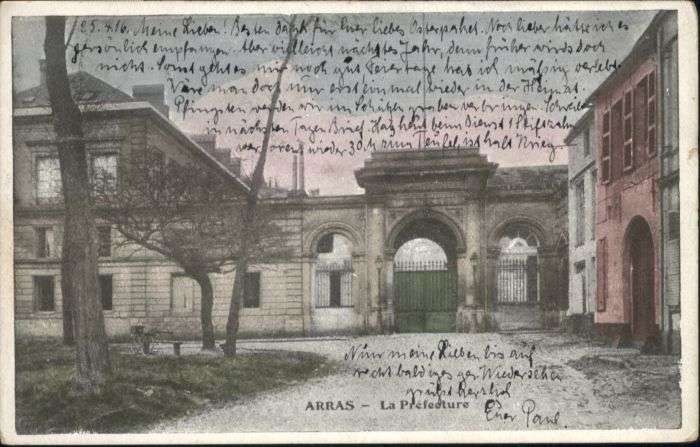 25.4.16. Meine Lieben! Besten Dank für Euer liebes Osterpaket. Noch lieber hätte ich es
persönlich empfangen. Aber vielleicht nächstes Jahr, denn früher wirds doch
nicht. Sonst geht es mir noch gut. Feiertage hab ich mäßig verlebt.
Wäre man doch nur erst einmal wieder in der Heimat.
Pfingsten werden wir im Schützengraben verbringen. Schreibe
in nächsten Tagen Brief. Hab heut beim Dienst 1
verloren, wieder 30 M zum Teufel, ist halt Krieg
Nun meine Lieben bis auf
recht baldiges ges. Wiedersehen
grüßt herzlich
Euer Paul.
ARRAS – La Préfecture